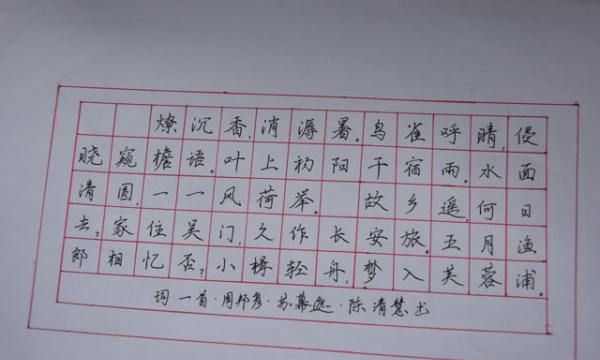 燎沉香,消溽暑。鸟雀呼晴,侵
晓窥檐语。叶上初阳干宿雨。水面
清圆,一一风荷举。 故乡遥,何日
去?家住吴门,久作长安旅。五月渔
郎相忆否?小楫轻舟,梦入芙蓉浦。
词一首·周邦彦·苏幕遮·陈清慧书